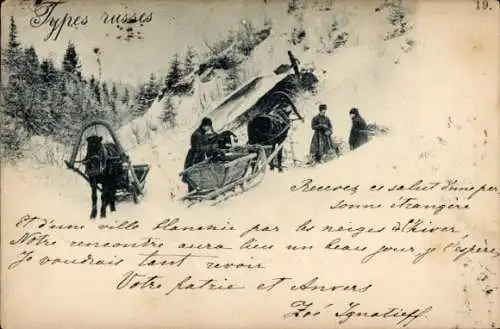 Types russes
19.
Recevez ce salut d'une per
sonne étrangère
Et d'une ville blanchie par les neiges d'hiver
Notre rencontre aura lieu un beau jour, je l'espère,
Je voudrais tant revoir
Votre patrie et Anvers
Zoé Ignatieff